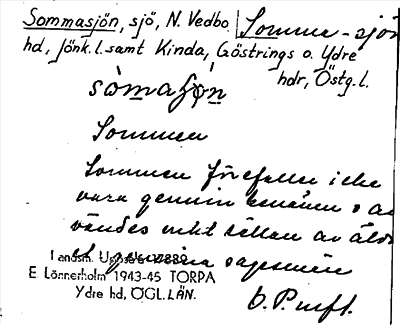 Sommasjön, sjö, N. Vedbo Somma-sjön
hd, Jönk.l. samt Kinda, Göstrings o. Ydre
hdr, Östg.l.
sòmaʃön
Sommen
Sommen förefaller icke
vara genuin benämn o an
vändes rikt sällan av äldre
genuina sagesmän
Landsm. Upps.
E. Lönnerholm 1943-45 TORPA
Ydre hd, ÖGL. LÄN.